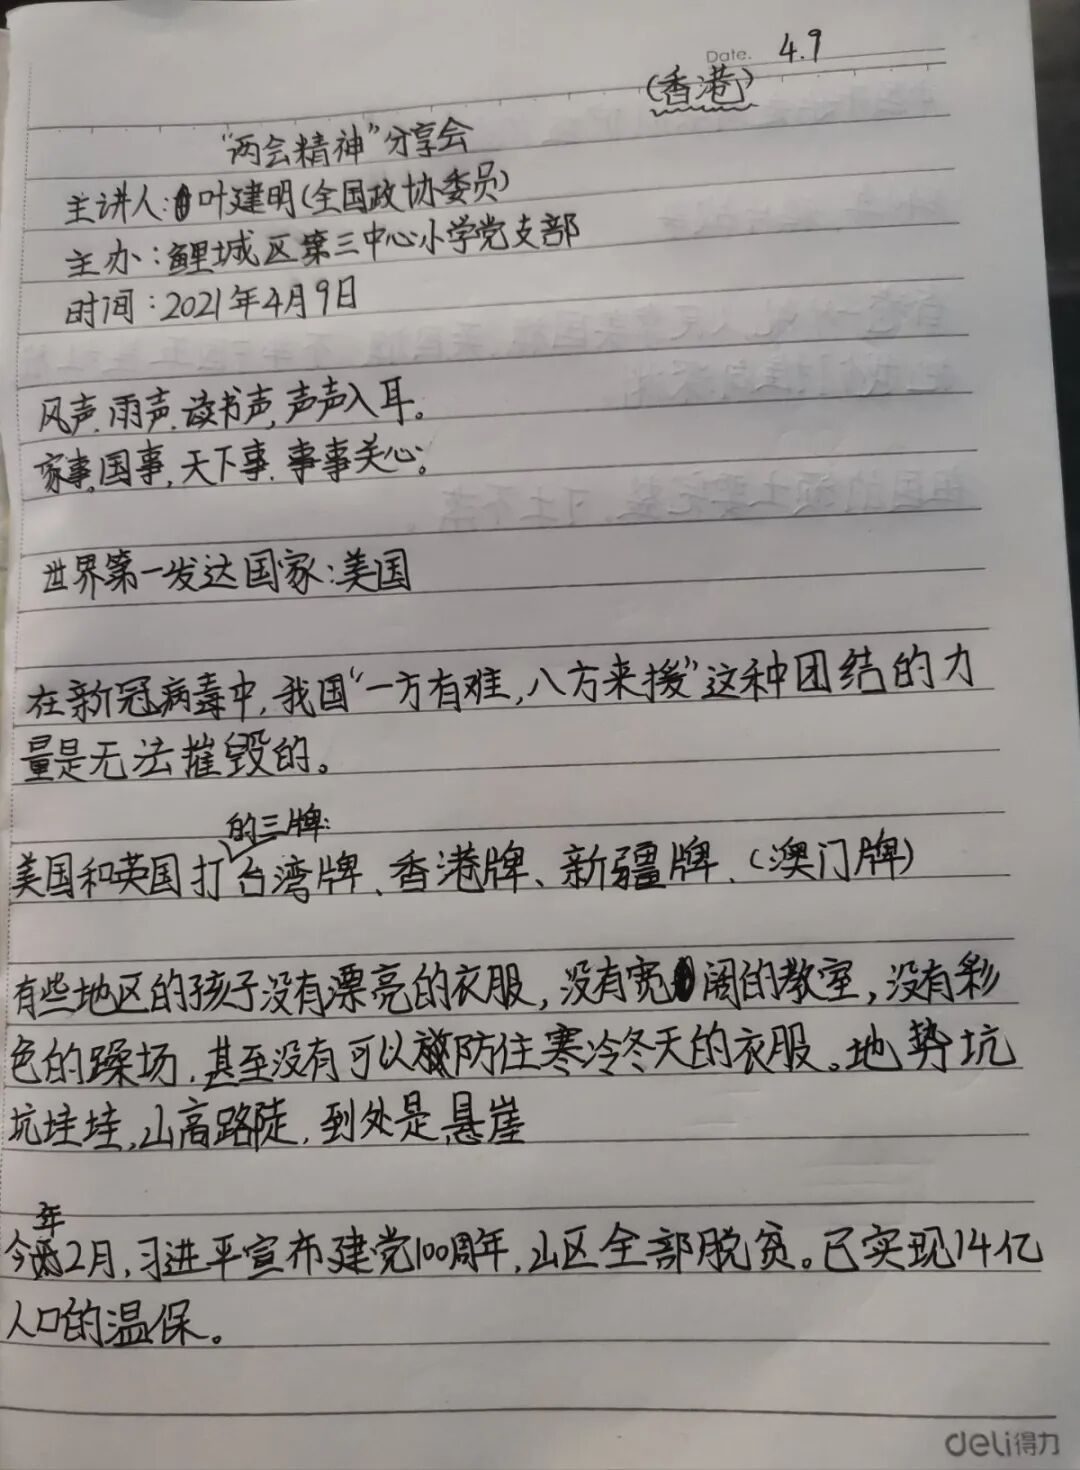 Date. 4.9
(香港)
“两会精神”分享会
主讲人:叶建明(全国政协委员)
主办:鲤城区第三中心小学党支部
时间:2021年4月9日
风声.雨声.读书声,声声入耳。
家事.国事,天下事.事事关心;
世界第一发达国家:美国
在新冠病毒中,我国“一方有难,八方来援”这种团结的力
量是无法摧毁的。
的三牌:
美国和英国打台湾牌、香港牌、新疆牌、(澳门牌)
有些地区的孩子没有漂亮的衣服,没有宽阔的教室,没有彩
色的躁场,甚至没有可以防住寒冷冬天的衣服。地势坑
坑坑洼洼,山高路陡,到处是悬崖
年
今2月,习进平宣布建党100周年,山区全部脱贫。已实现14亿
人口的温保。
deli得力